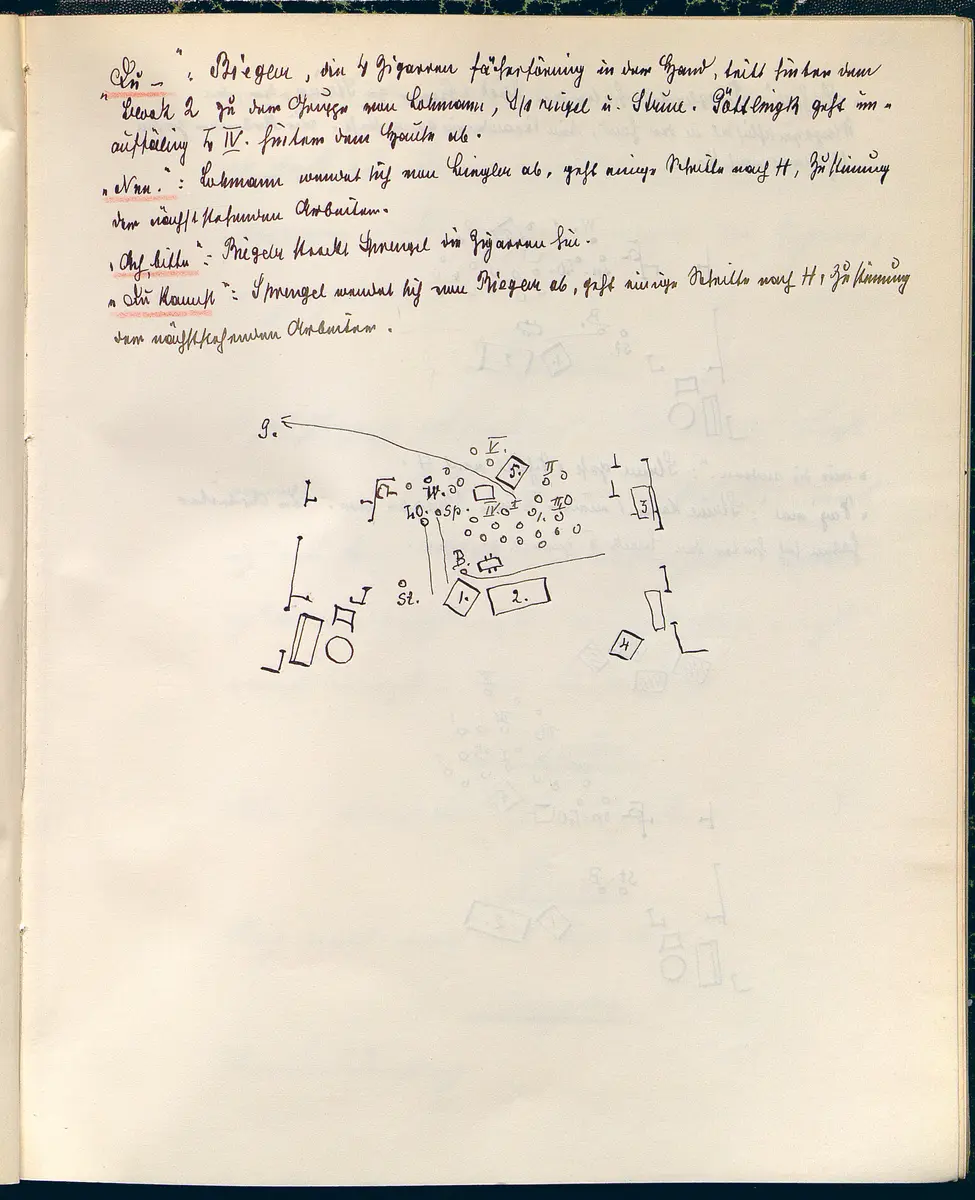 "Du —": Biegler, die 4 Zigarren fächerförmig in der Hand, tritt hinter dem
Block 2 zu der Gruppe von Lohmann, Sprengel u. Strüve. Göttlingk geht un=
auffällig L IV. hinter dem Hause ab.
"Nee.": Lohmann wendet sich von Biegler ab, geht einige Schritte nach H, Zustimmung
der nächststehenden Arbeiter.
"Ach, bitte": Biegler streckt Sprengel die Zigarren hin.
"Du kannst": Sprengel wendet sich von Biegler ab, geht einige Schritte nach H, Zustimmung
der nächststehenden Arbeiter.
g.
V.
5.
II
IV.
I
III
Lo.
Sp.
3
B.
St.
1.
2.
4